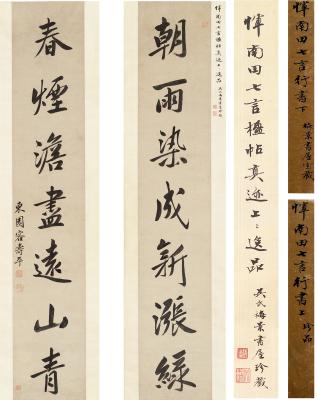 朝雨染成新漲綠
春煙澹盡遠山青
東園客壽平
惲南田七言楹帖真迹上上逸品
吳氏梅景書屋珍藏
惲南田七言行書下
梅景書屋寶藏
惲南田七言行書上
珍品